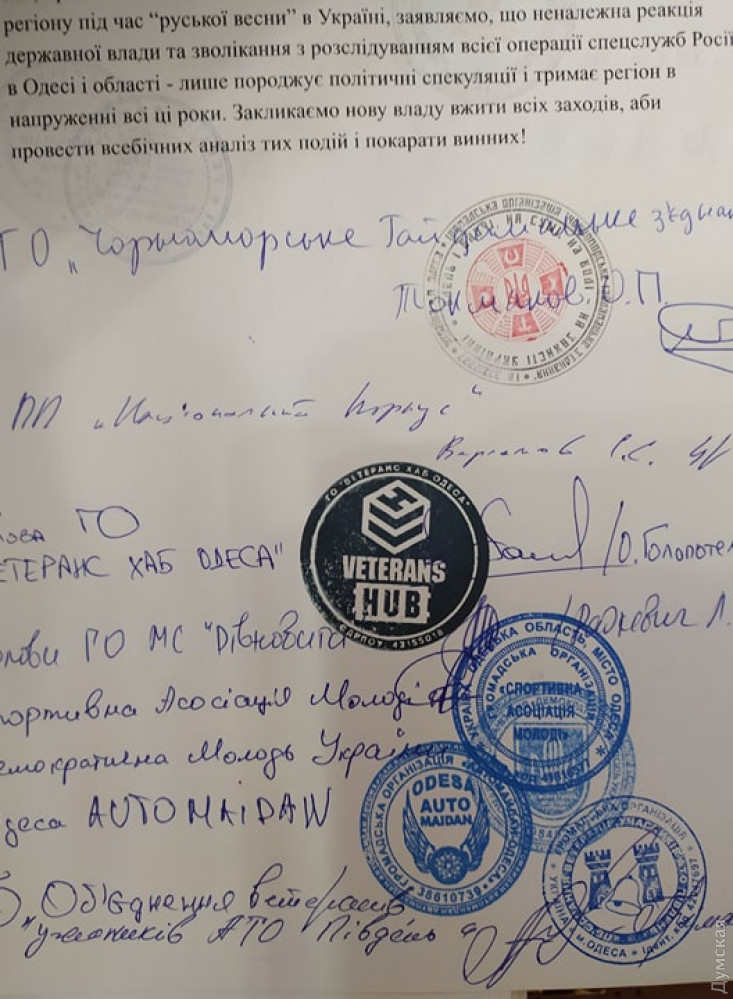 регіону під час “руської весни” в Україні, заявляємо, що неналежна реакція
державної влади та зволікання з розслідуванням всієї операції спецслужб Росії
в Одесі і області - лише породжує політичні спекуляції і тримає регіон в
напруженні всі ці роки. Закликаємо нову владу вжити всіх заходів, аби
провести всебічних аналіз тих подій і покарати винних!
ГО „Чорноморське Гайдамацьке з'єднан
Токманов О.П.
ПП „Національний Корпус"
С.С.
ова ГО
ЕТЕРАНС ХАБ ОДЕСА"
/О.Голопоте
ГО "ВЕТЕРАНС ХАБ ОДЕСА"
VETERANS
HUB
ЄДРПОУ 42155018
лови ГО МС "Рівновага
портивна Асоціація Молоді
емократична Молодь України
деса AUTOMAIDAN
УКРАЇНА ОДЕСЬКА ОБЛАСТЬ, МІСТО ОДЕСА
ГРОМАДСЬКА ОРГАНІЗАЦІЯ
«СПОРТИВНА
АСОЦІАЦІЯ
МОЛОДІ»
ГРОМАДСЬКА ОРГАНІЗАЦІЯ «АВТОМАЙДАН ОДЕСА»
ODESA
AUTO
MAIDAN
38610739
Об'єднення ветеранів
"учасників АТО Південь"
ГРОМАДСЬКА ОРГАНІЗАЦІЯ
УКРАЇНА
М.ОДЕСА
Ідент. код
Думская